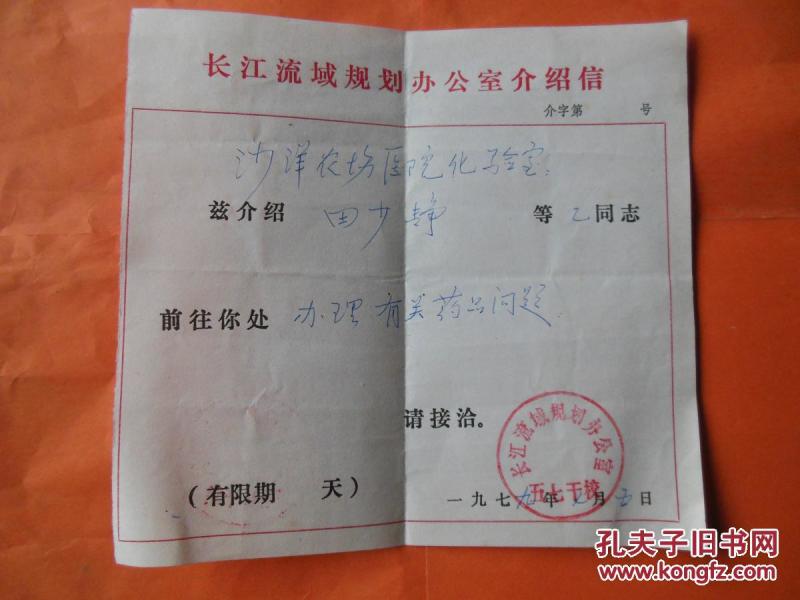 长江流域规划办公室介绍信
介字第 号
沙洋农场医院化验室:
兹介绍 田少静 等 乙同志
前往你处 办理有关药品问题.
请接洽。
长江流域规划办公室
五七干校
(有限期 天)
一九七九年 月五日
孔夫子旧书网
www.kongfz.com